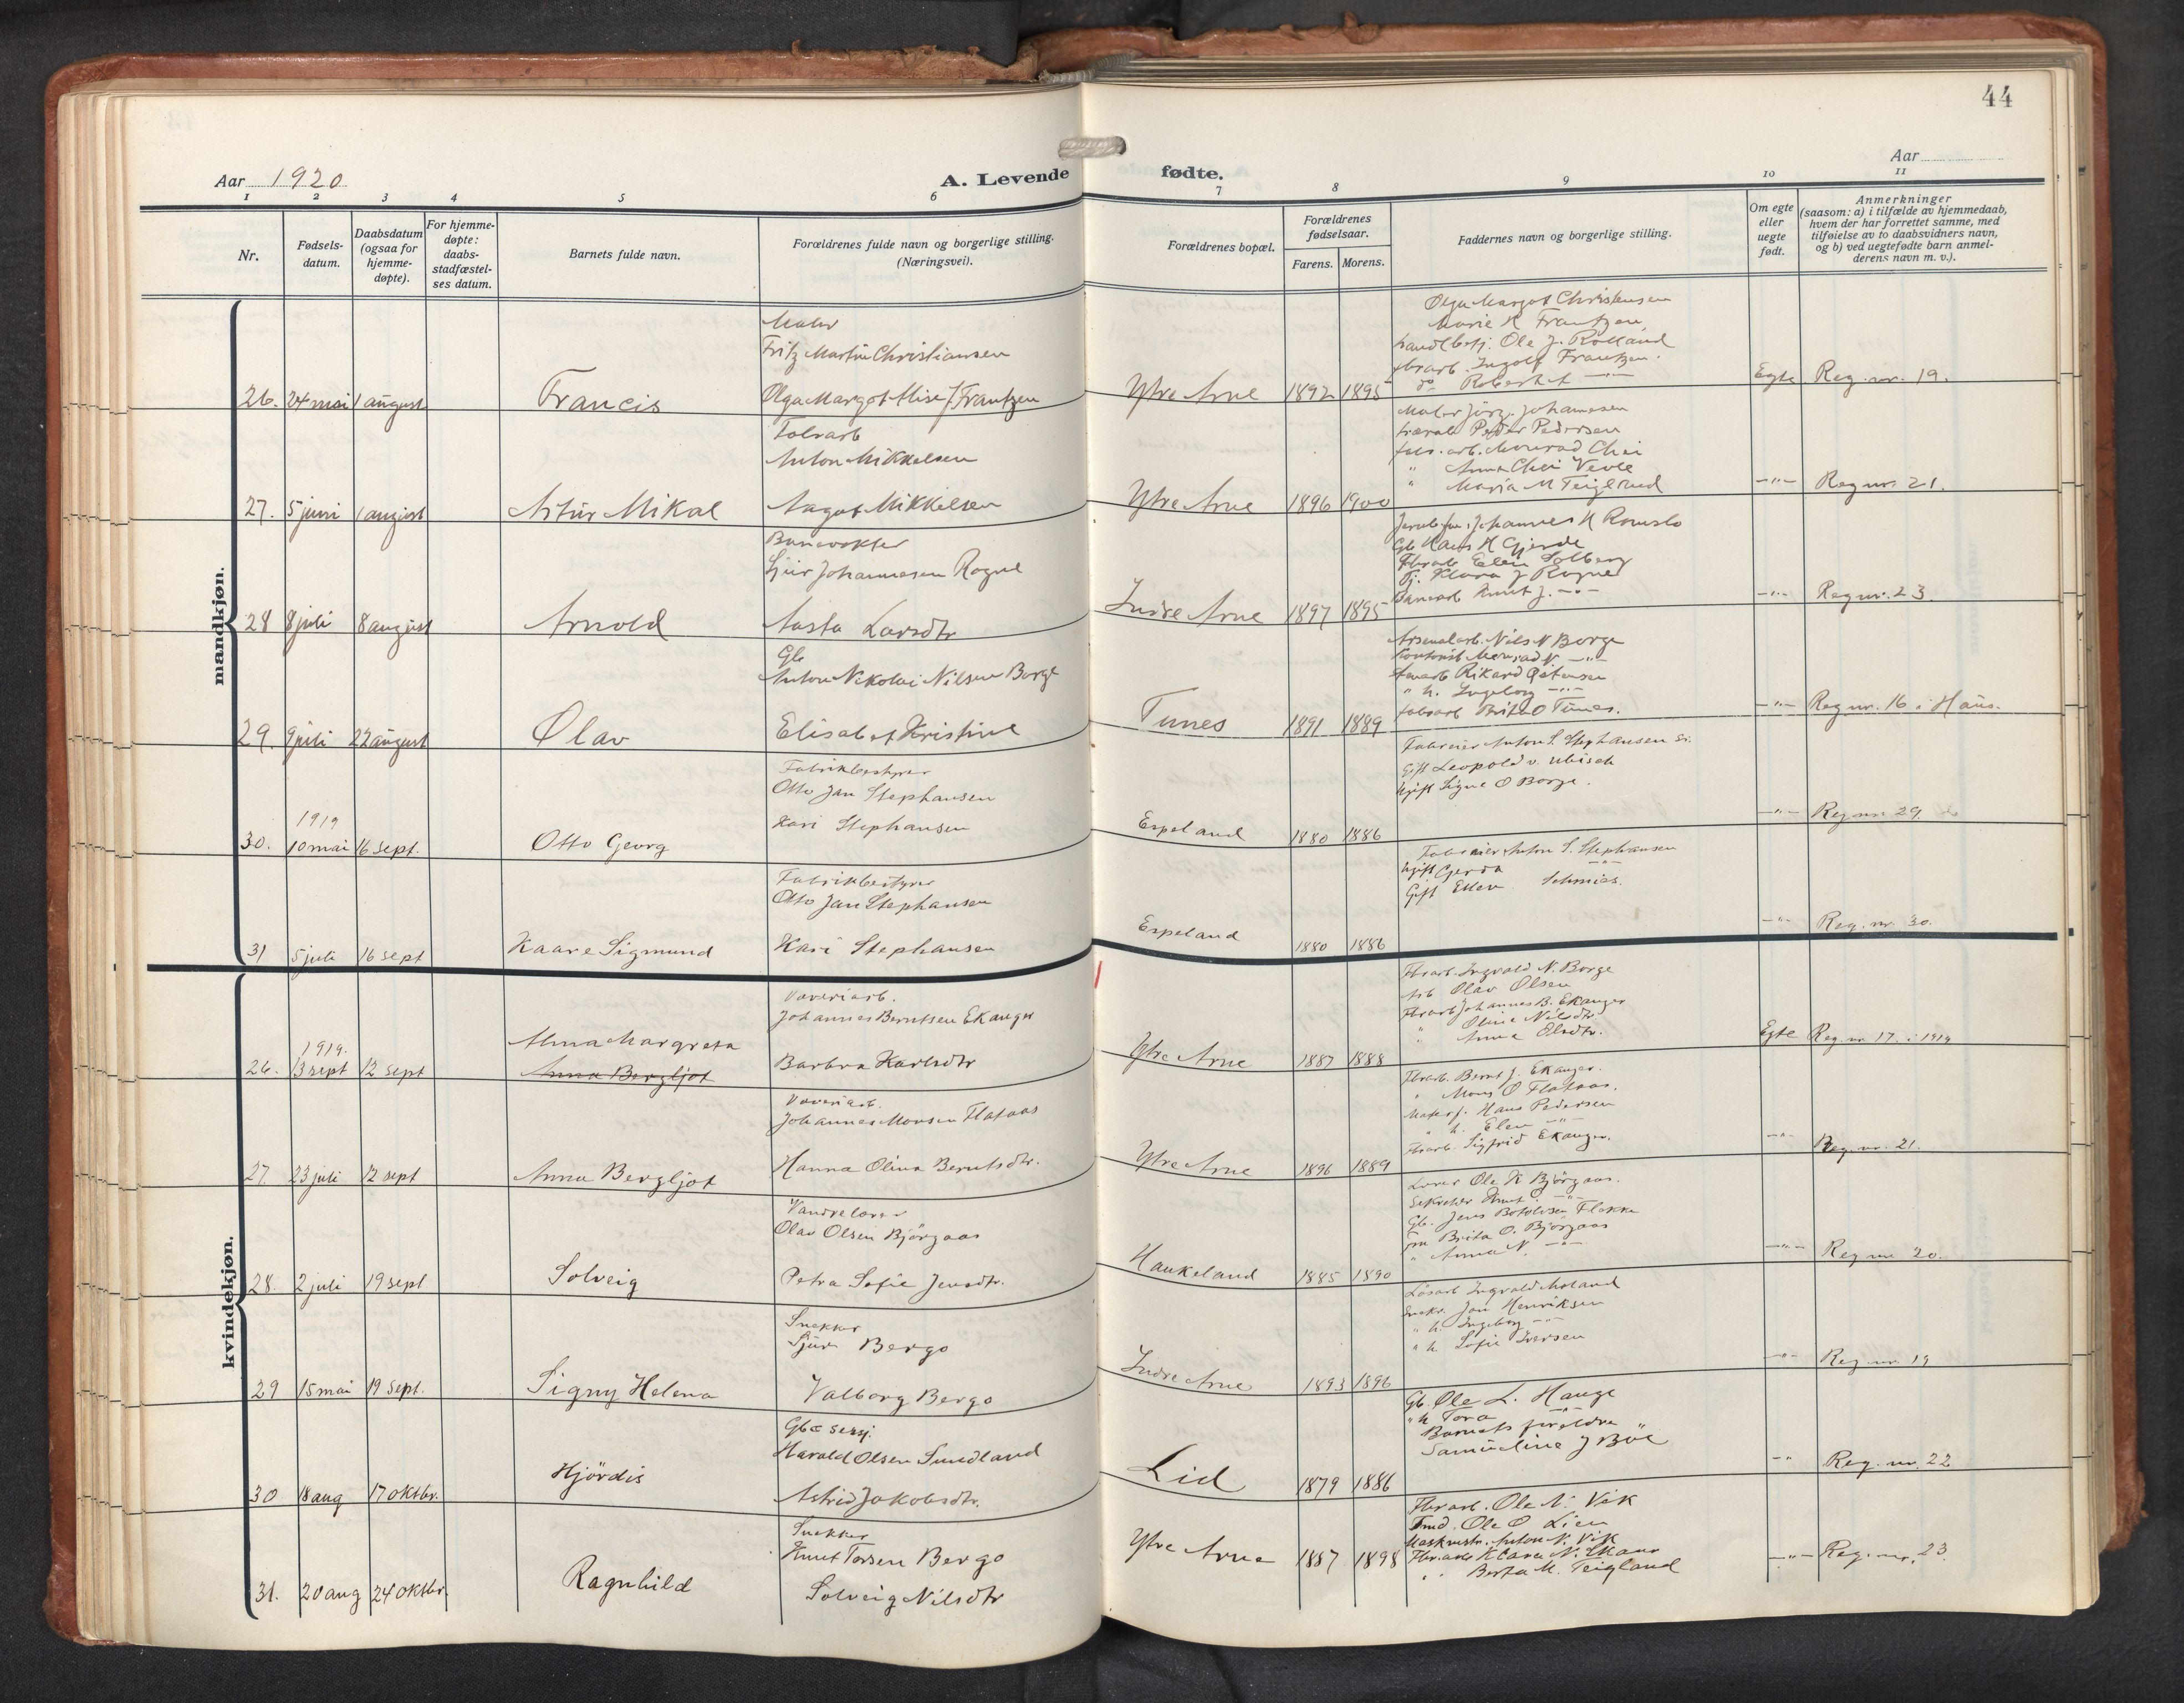 44
Aar 1920
A. Levende fødte.
Aar
1 2 3 4 5 6 7 8 9 10 11
Nr.
Fødsels-
datum.
Daabsdatum
(ogsaa for
hjemme-
døpte).
For hjemme-
døpte:
daabs-
stadfæstel-
ses datum.
Barnets fulde navn.
Forældrenes fulde navn og borgerlige stilling.
(Næringsvei).
Forældrenes bopæl.
Forældrenes
fødselsaar.
Farens. Morens.
Faddernes navn og borgerlige stilling.
Om egte
eller
uegte
født.
Anmerkninger
(saasom: a) i tilfælde av hjemmedaab,
hvem der har forrettet samme, med
tilføielse av to daabsvidners navn,
og b) ved uegtefødte barn anmel-
derens navn m. v.).
mandkjøn.
Maler
Fritz Martin Christiansen
26. 24 mai 1 august Francis Olga Margot Alise f. Frantzen Ytre Arne 1892 1895 Egte Reg. nr. 19.
Olga Margot Christensen
Marie K Frantzen
Ole J. Rolland
Ingolf Frantzen.
do Robert
Anton Mikkelsen
27. 5 juni 1 august Artur Mikal Aagot Mikkelsen Ytre Arne 1896 1900 -"- Reg nr. 21.
Maler Jörg. Johannesen
Peder Pedersen
arb. Monrad
" Anna
" Maria M Teigland
Banevokter
Sjur Johannesen Rogne
28 8 juli 8 august Arnold Aasta Larsdtr Indre Arne 1897 1895 -"- Reg nr. 23
Johannes K Romslo
Gb Hans H Gjerde
Fbrarb Elen Solberg
Tj. Klara J Rogne
Banearb Knut J. -"-
Gb
Anton Nikolai Nilsen Borge
29. 9 juli 22 august Olav Elisabet Kristine Tunes 1891 1889 -"- Reg nr. 16 i Haus.
Arsenalarb. Nils N Borge
Kontorist Monrad N -"-
Rikard Østensen
" h. Ingeborg -"-
fabrarb Brita O Tunes.
Fabrikbestyrer
Otto Jan Stephansen
1919
30. 10 mai 16 sept. Otto Georg Kari Stephansen Espeland 1880 1886 -"- Reg nr. 29.
Fabreier Anton S. Stephansen Sr.
Gift Leopold v. Ubisch
Ugift Signe O Borge.
Fabrikbestyrer
Otto Jan Stephansen
31 5 juli 16 sept Kaare Sigmund Kari Stephansen Espeland 1880 1886 -"- Reg. nr. 30.
Fabreier Anton S. Stephansen
Ugift Gerda -"-
Gift Ellen
kvindekjøn.
Væveriarb.
Johannes Berntsen Ekanger
Alma Margreta
1919.
26. 13 sept 12 sept Anna Bergljot Barbra Karlsdtr Ytre Arne 1887 1888 Egte Reg. nr 17. i 1919
Fbrarb. Ingvald N. Borge
Arb Olav Olsen
Fbrarb Johannes B. Ekanger
" Oline Nilsdtr
" Anna Olsdtr.
Væveriarb.
Johannes Monsen Flataas
27. 23 juli 12 sept Anna Bergljot Hanna Olina Berntsdtr. Ytre Arne 1896 1889 -"- Reg. nr. 21.
Fbrarb. Bernt J. Ekanger.
" Mons O Flataas.
Hans Pedersen
" h. Elen -"-
Fbrarb. Sigfrid Ekanger.
Vandrelærer
Olav Olsen Björgaas
28. 2 juli 19 sept Solveig Petra Sofie Jensdtr. Haukeland 1885 1890 -"- Reg nr. 20.
Lærer Ole K Björgaas.
Sekretær Knut O. -"-
Gb. Jens Botolvsen Flokka
Frk Brita O. Björgaas
" Anna N. -"-
Snekker
Sjur Bergo
29 15 mai 19 sept. Signy Helena Valborg Bergo Indre Arne 1893 1896 -"- Reg. nr. 19
Løsarb Ingvald Moland
Snekr. Jan Henriksen
" h. Ingeborg -"-
" h. Sofie Iversen
Harald Olsen Sundland
30 18 aug 17 oktbr. Hjördis Astrid Jakobsdtr. Lid 1879 1886 -"- Reg. nr. 22
Gb. Ole L. Hauge
" h Tora -"-
Barnets foreldre
Samueline J Böe
Snekker
Knut Torsen Bergo
31. 20 aug 24 oktbr. Ragnhild Solveig Nilsdtr Ytre Arne 1887 1898 -"- Reg. nr. 23.
Fbrarb. Ole N. Vik
Ole O. Lien
Maskmstr. Anton N. Vik
Fbrarb Klara N.
" Berta M. Teigland